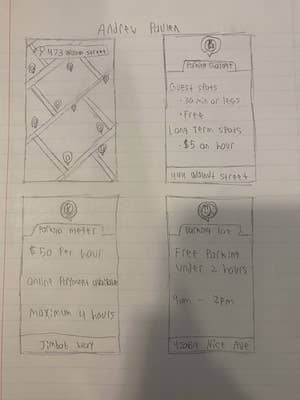 Andrew Paulen
473 Walnut Street
Parking Garage
Guest spots
- 30 min or less
- Free
Long Term spots
- $5 an hour
444 Walnut Street
Parking meter
$50 Per hour
Online Payment available
Maximum 4 hours
Jimbob Way
Parking Lot
Free Parking
under 2 hours
9am - 2pm
Nice Ave